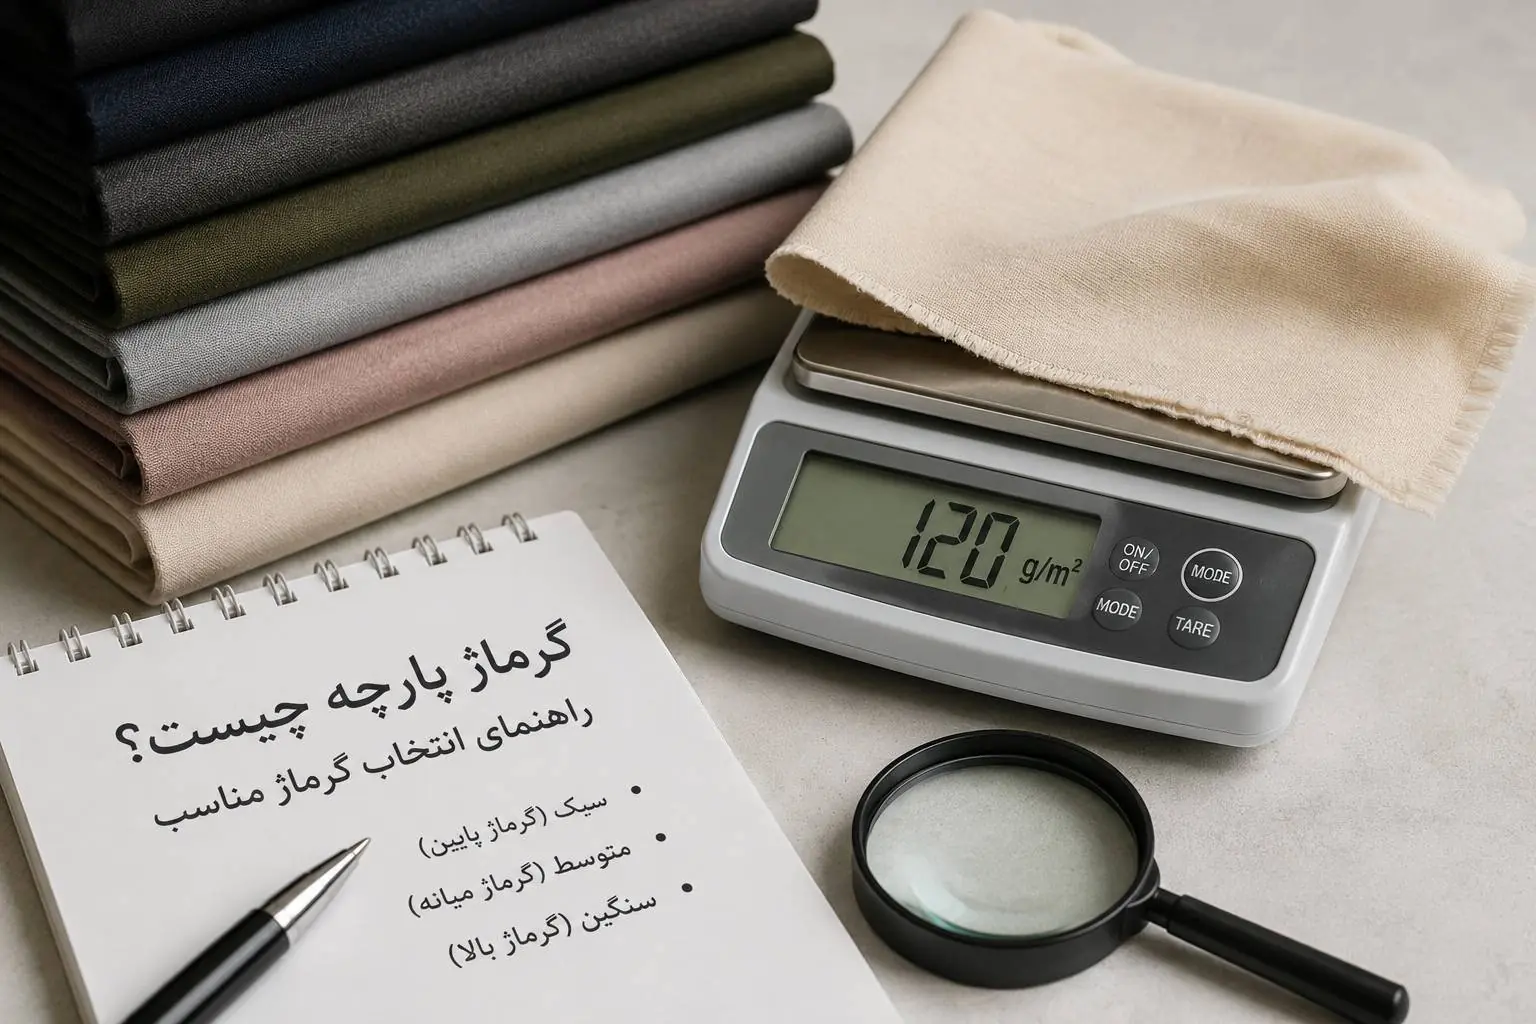 گرماژ پارچه چیست؟
راهنمای انتخاب گرماژ مناسب
• سبک (گرماژ پایین)
• متوسط (گرماژ میانه)
• سنگین (گرماژ بالا)
120 g/m²
ON/
OFF
MODE
MODE
TARE